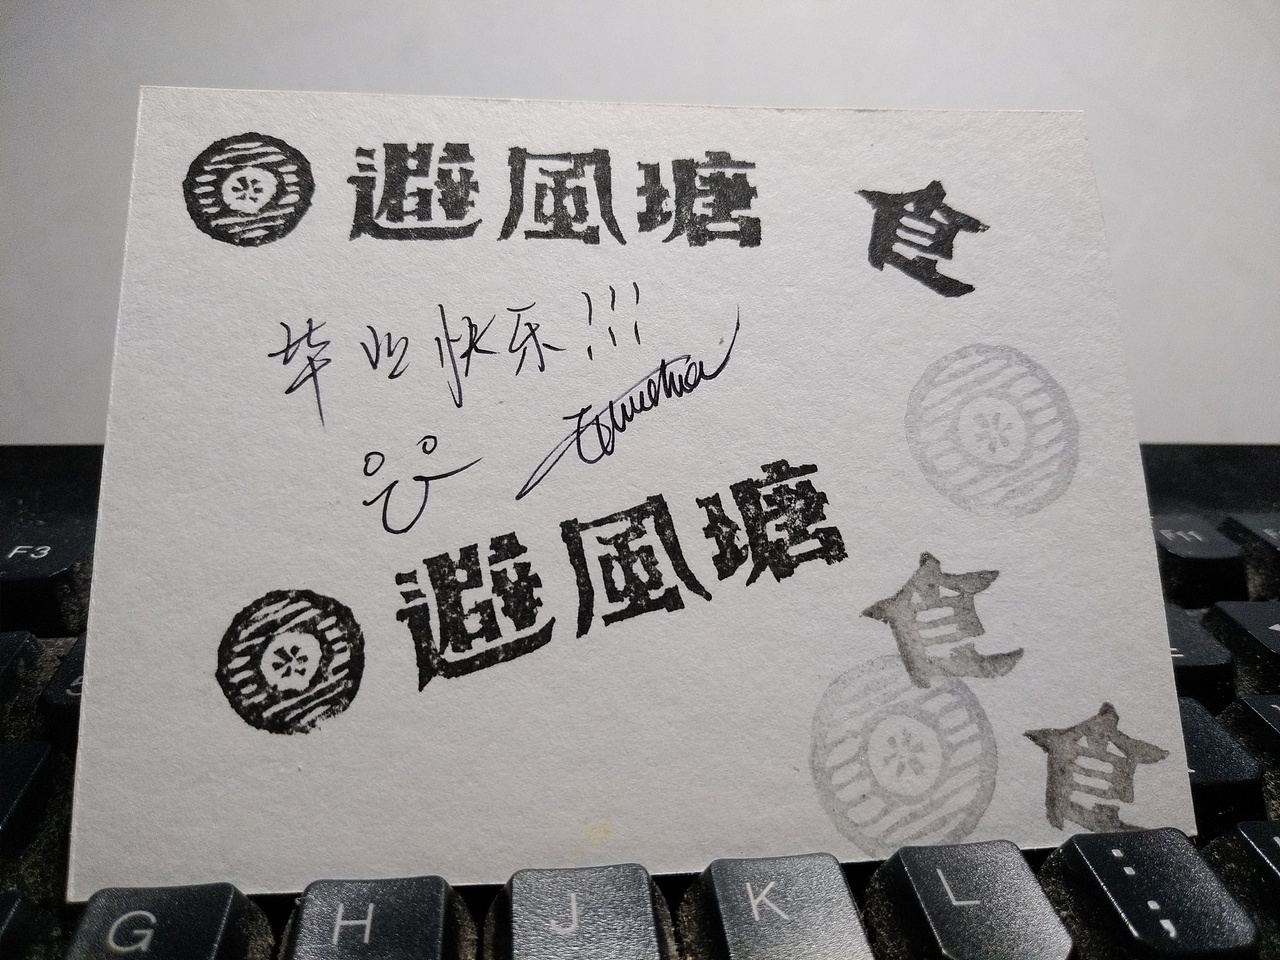 避風瑭
食
毕业快乐!!!
避風瑭
食
食
F3
F11
G H J K L : ;